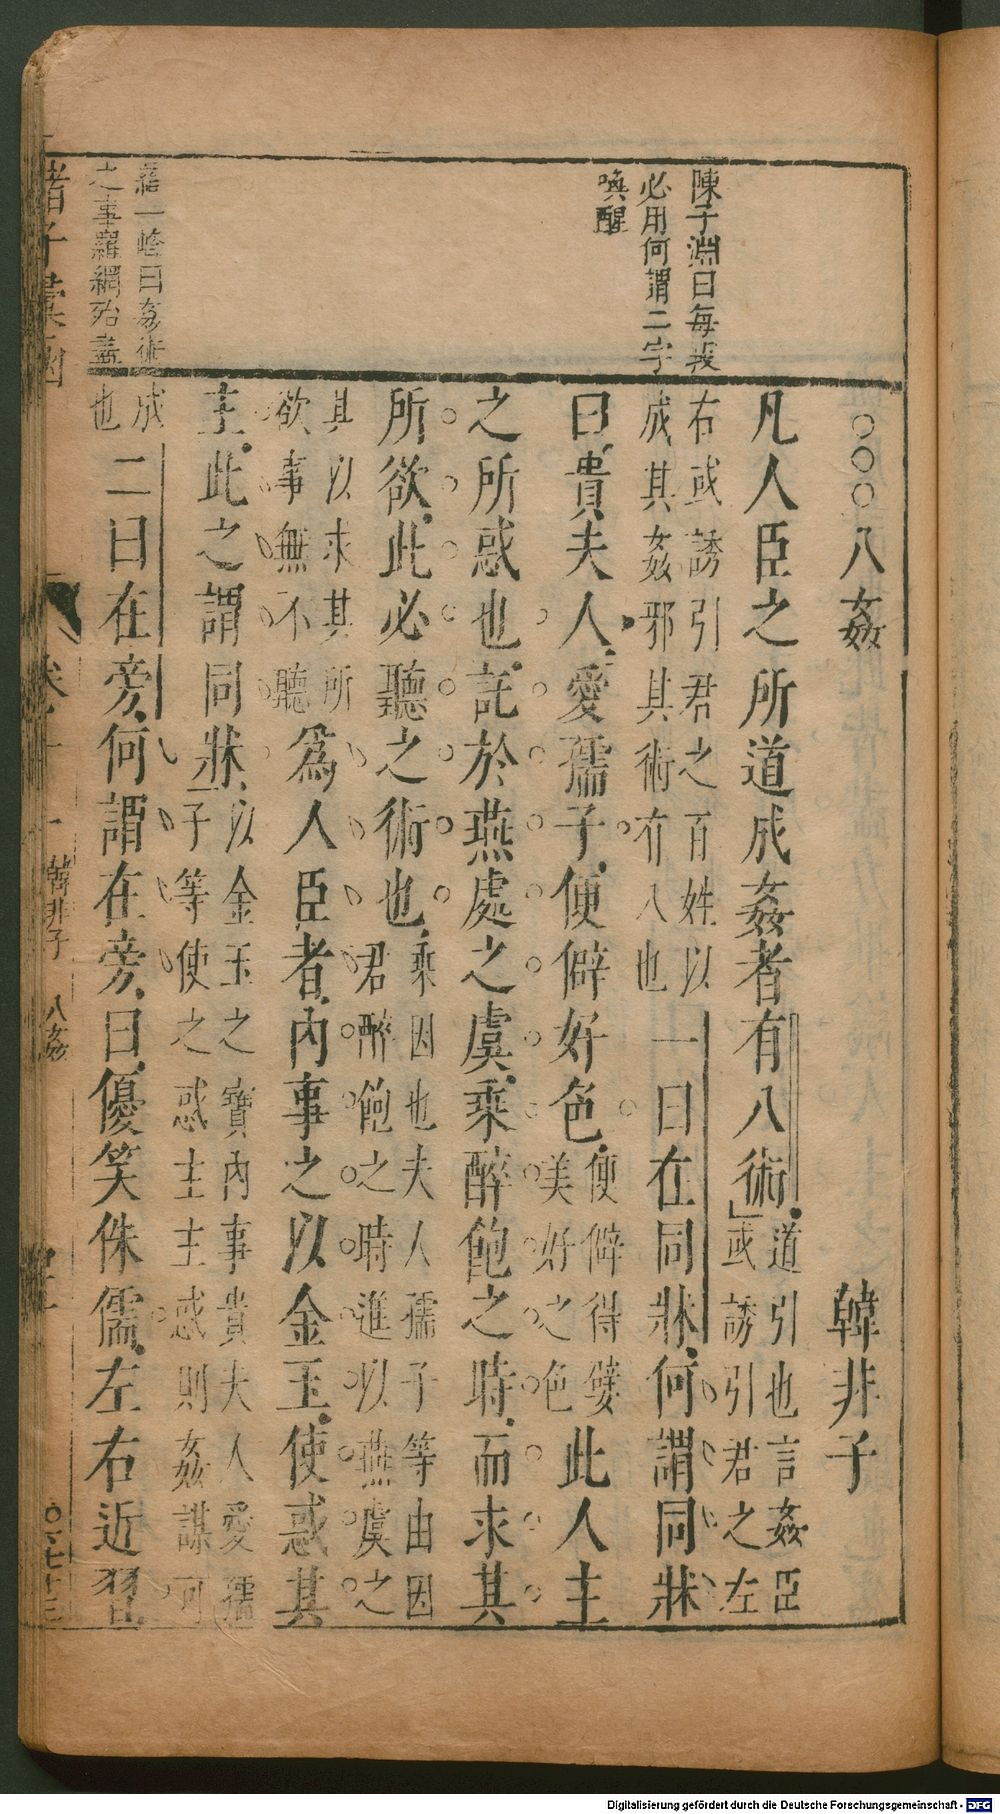 陳子淵曰每段
必用何謂二字
喚醒
羅一峰曰姦術
之事羅網殆盡
○○○八姦 韓非子
凡人臣之所道成姦者有八術道引也言姦臣
或誘引君之左
右或誘引君之百姓以
成其姦邪其術有八也一曰在同牀何謂同牀
曰貴夫人愛孺子便僻好色便僻得嬖
美好之色此人主
之所惑也託於燕處之虞乘醉飽之時而求其
所欲此必聽之術也乘因也夫人孺子等由因
君醉飽之時進以燕虞之
其以求其所
欲事無不聽為人臣者內事之以金玉使惑其
主此之謂同牀以金玉之寶內事貴夫人愛孺
子等使之惑主主惑則姦謀可
成
也二曰在旁何謂在旁曰優笑侏儒左右近習
諸子彙函
卷
韓非子 八姦
Digitalisierung gefördert durch die Deutsche Forschungsgemeinschaft - DFG